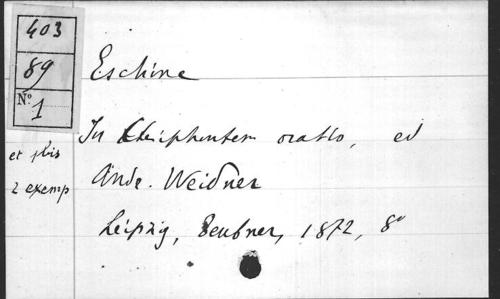 403
89
No. 1
Eschine
In Ctesiphontem oratio, ed
Andr. Weidner
Leipzig, Teubner, 1872, 8°
et plis
2 exemp